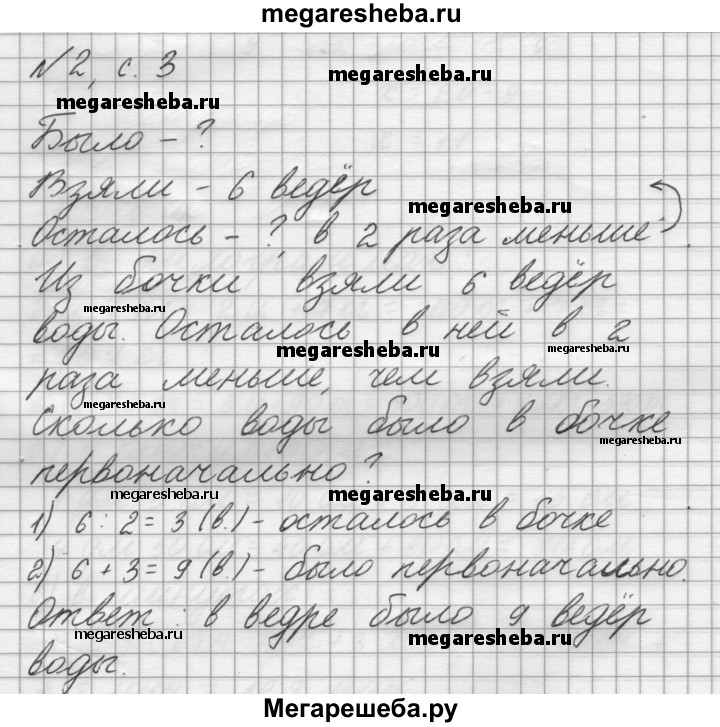 megaresheba.ru
№2, с. 3
megaresheba.ru
megaresheba.ru
Было - ?
Взяли - 6 ведёр
megaresheba.ru
Осталось - ?, в 2 раза меньше
Из бочки взяли 6 ведёр
megaresheba.ru
воды. Осталось в ней в 2
megaresheba.ru
megaresheba.ru
раза меньше, чем взяли.
megaresheba.ru
Сколько воды было в бочке
megaresheba.ru
первоначально?
megaresheba.ru
megaresheba.ru
1) 6 : 2 = 3 (в.) - осталось в бочке
2) 6 + 3 = 9 (в.) - было первоначально.
Ответ: в ведре было 9 ведёр
megaresheba.ru
megaresheba.ru
воды.
Мегарешеба.ру